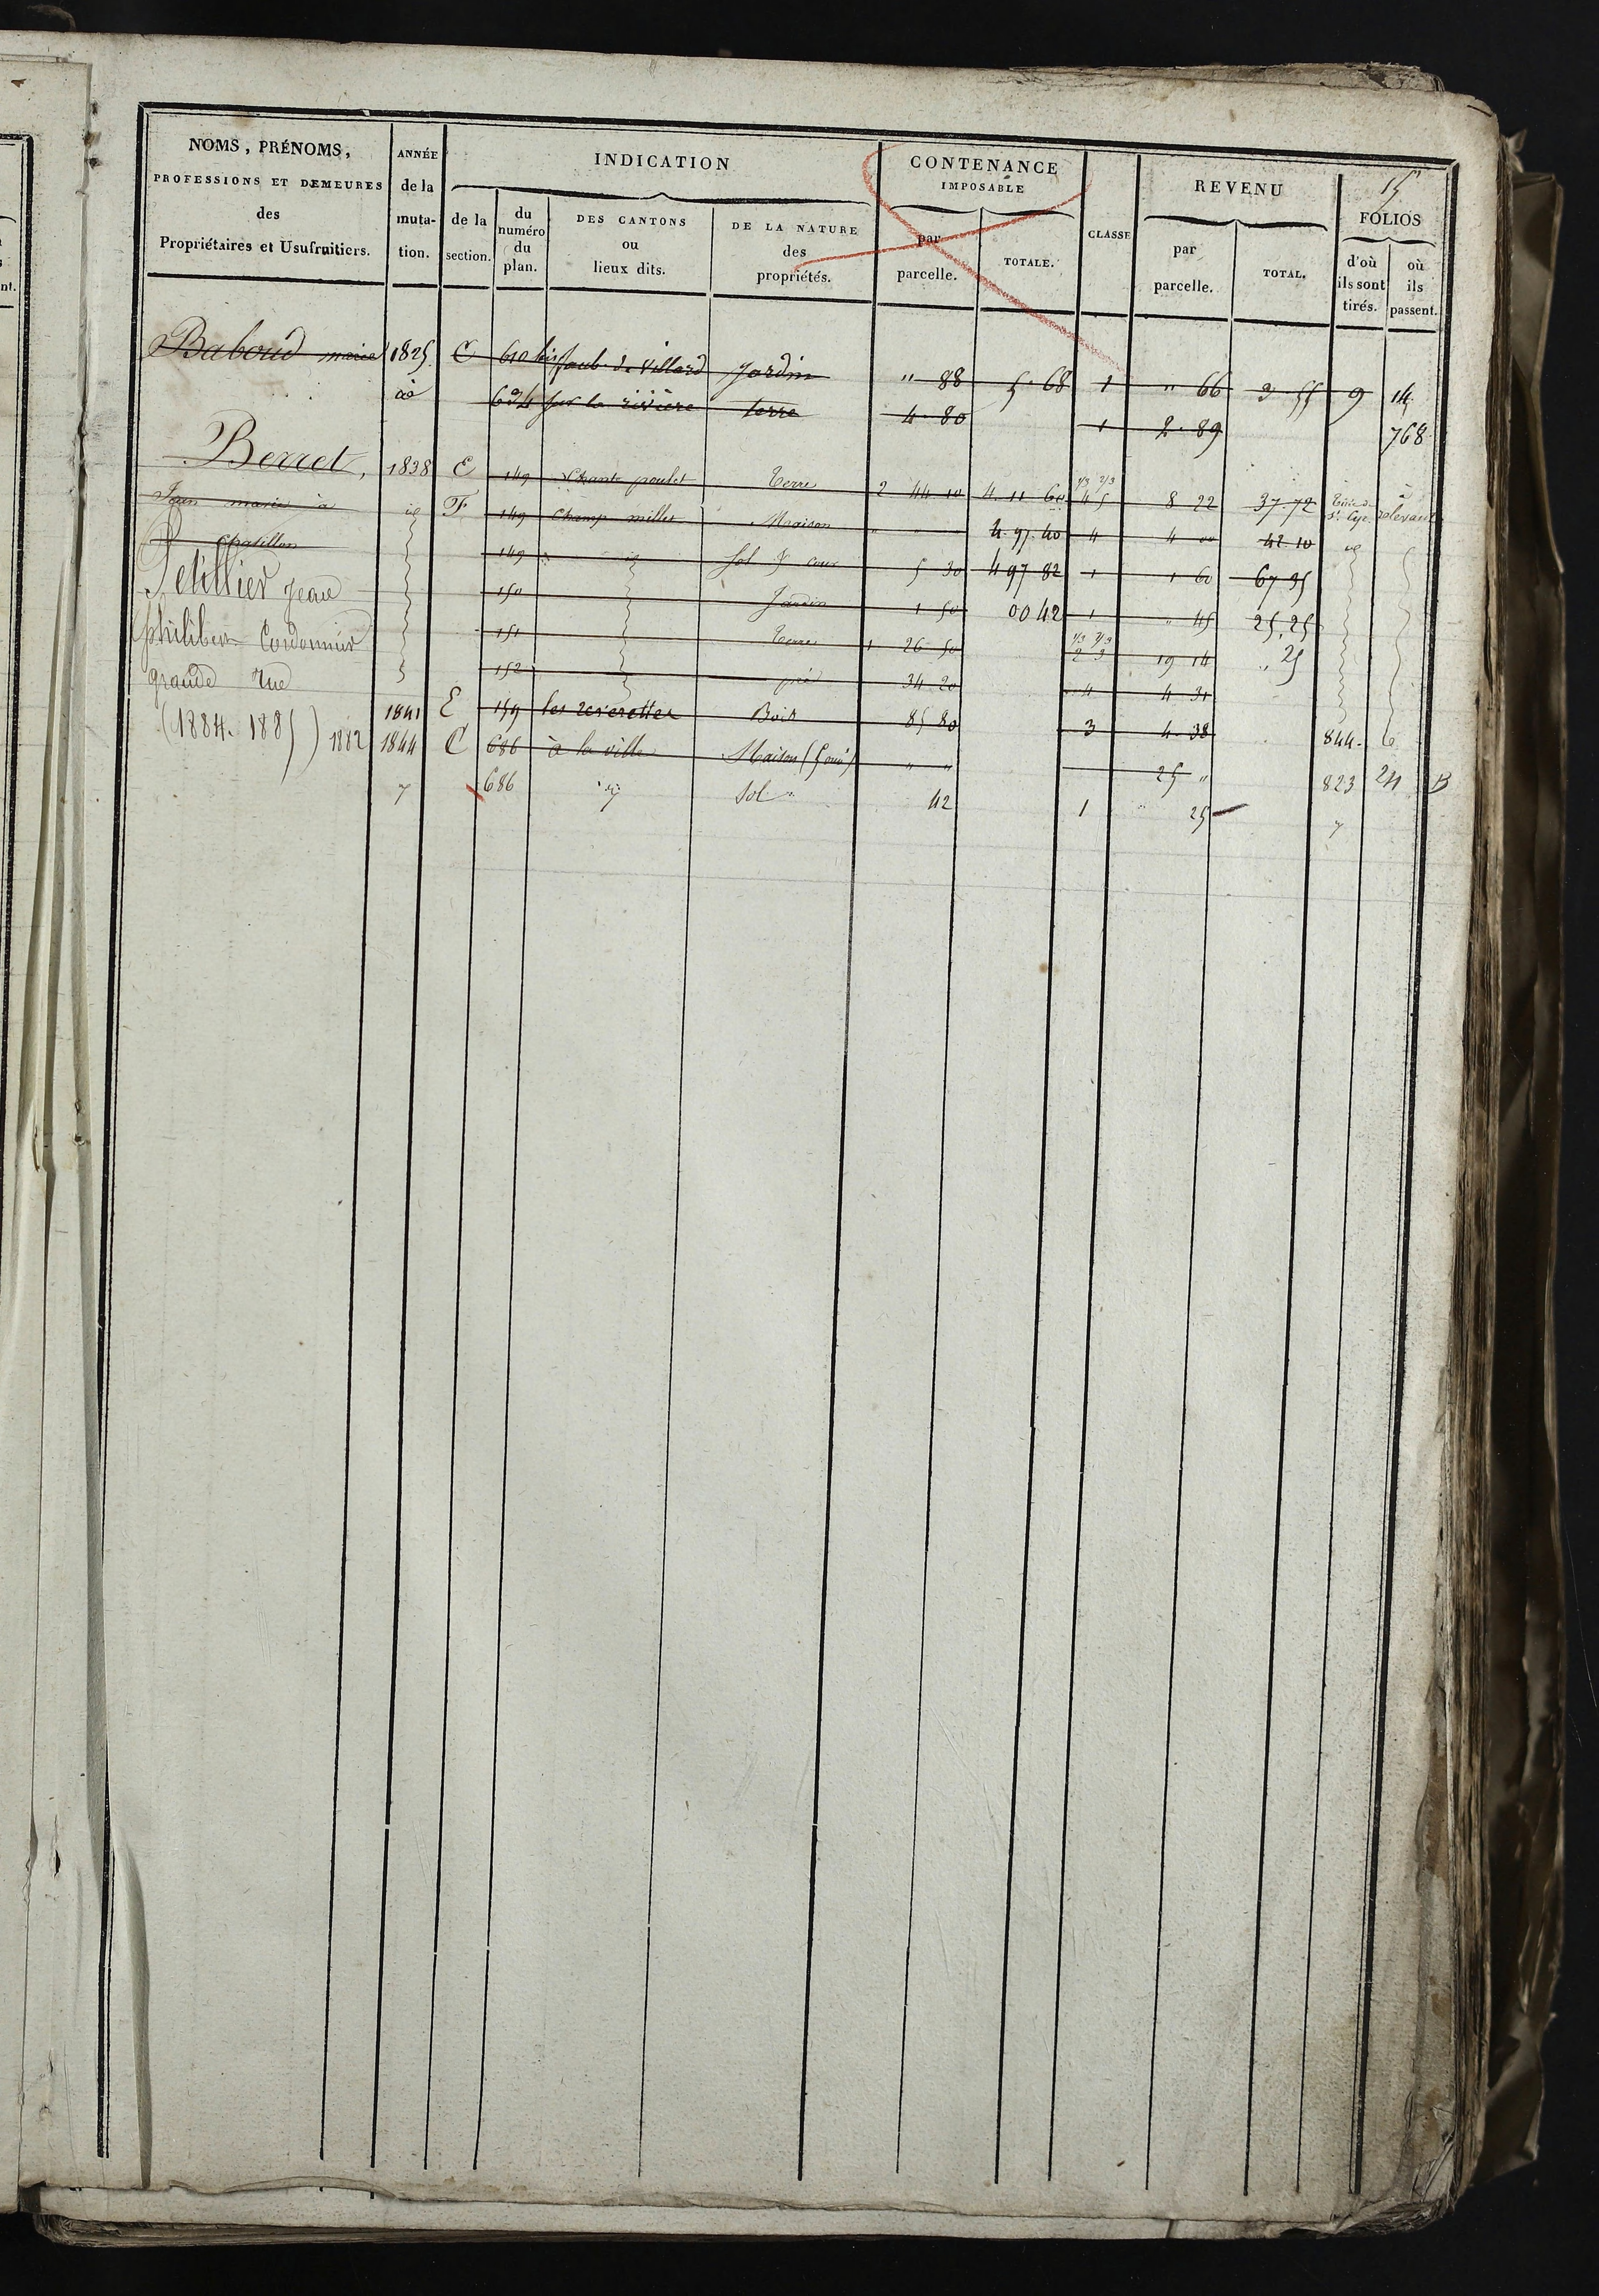 15
NOMS, PRÉNOMS, PROFESSIONS ET DEMEURES des Propriétaires et Usufruitiers.
ANNÉE de la muta-tion.
INDICATION
de la section.
du numéro du plan.
DES CANTONS ou lieux dits.
DE LA NATURE des propriétés.
CONTENANCE IMPOSABLE
par parcelle.
TOTALE.
CLASSE
REVENU
par parcelle.
TOTAL.
FOLIOS
d'où ils sont tirés.
où ils passent.
Baboud marie 1825 C 610 bis faub. de Villard Jardin " 88 5. 68 1 " 66 3 55 9 14
sur la rivière terre 4. 80 1 2. 89 768
Berret, 1838 E 149 Chante poulet Terre 2 44 10 4. 11 60 1/3 2/3 4 5 8 22 37 72
Jean marie à id F 149 Champ millet Maison " " " 4. 97. 40 4 4 00 42 10 id
Chatillon 149 id Sol & cour 5 30 4 97 82 1 1 60 67 35
Petillier Jean 150 Jardin 1 50 00 42 1 " 45 25. 25
philibert Cordonnier 151 Terre 1 26 50 1/3 2/3 2 3 19 14 ". 25
grande rue 152 pré 34 20 4 4 31
1841 E 159 Bois 85 80 3 4. 38 844.
(1884. 1885) 1882 1844 C 686 à la ville Maison " " 25 " 823 24 B
686 id Sol 42 1 " 25